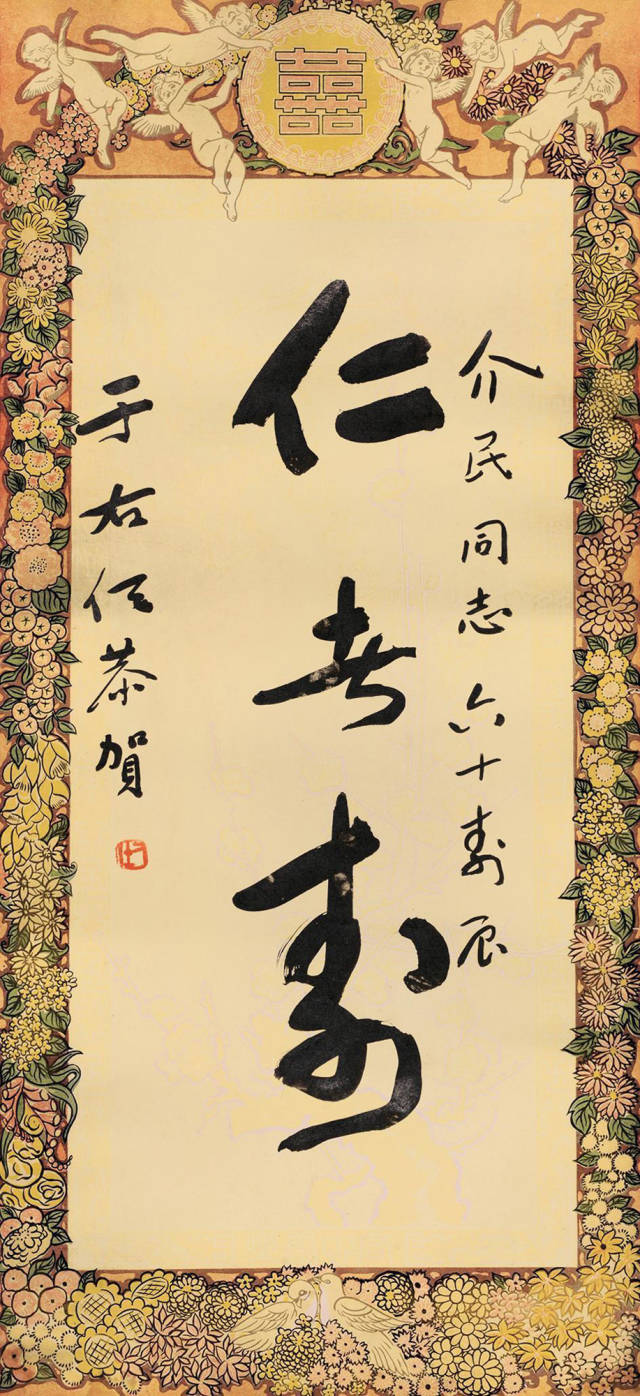 介民同志六十壽辰
仁者壽
于右任恭賀
囍